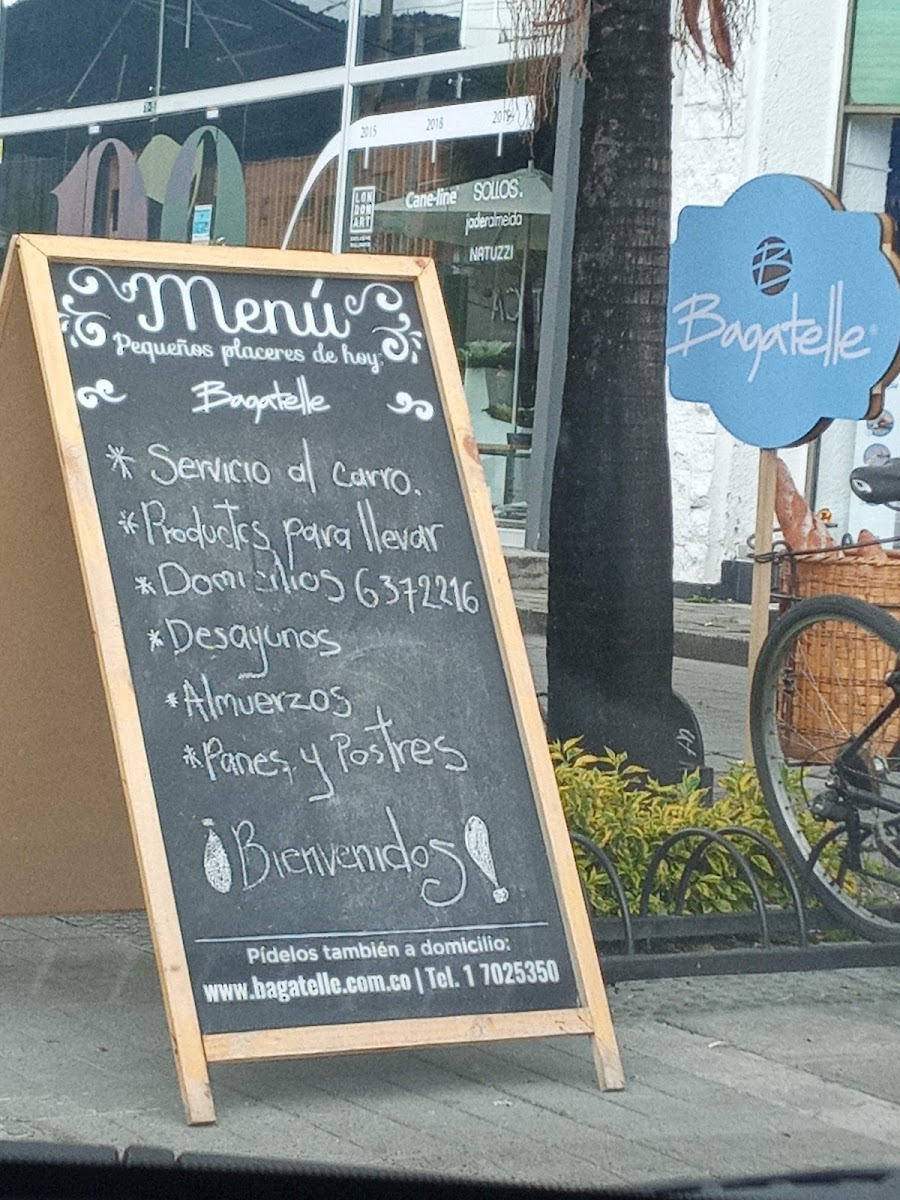 2015 2018 2019
LON
DON
ART
Cane-line SOLLOS.
jaderalmeida
NATUZZI
Menú
Pequeños placeres de hoy:
Bagatelle
* Servicio al carro.
* Productos para llevar
* Domicilios 6372216
* Desayunos
* Almuerzos
* Panes y Postres
¡Bienvenidos!
Pídelos también a domicilio:
www.bagatelle.com.co | Tel. 1 7025350
B
Bagatelle®